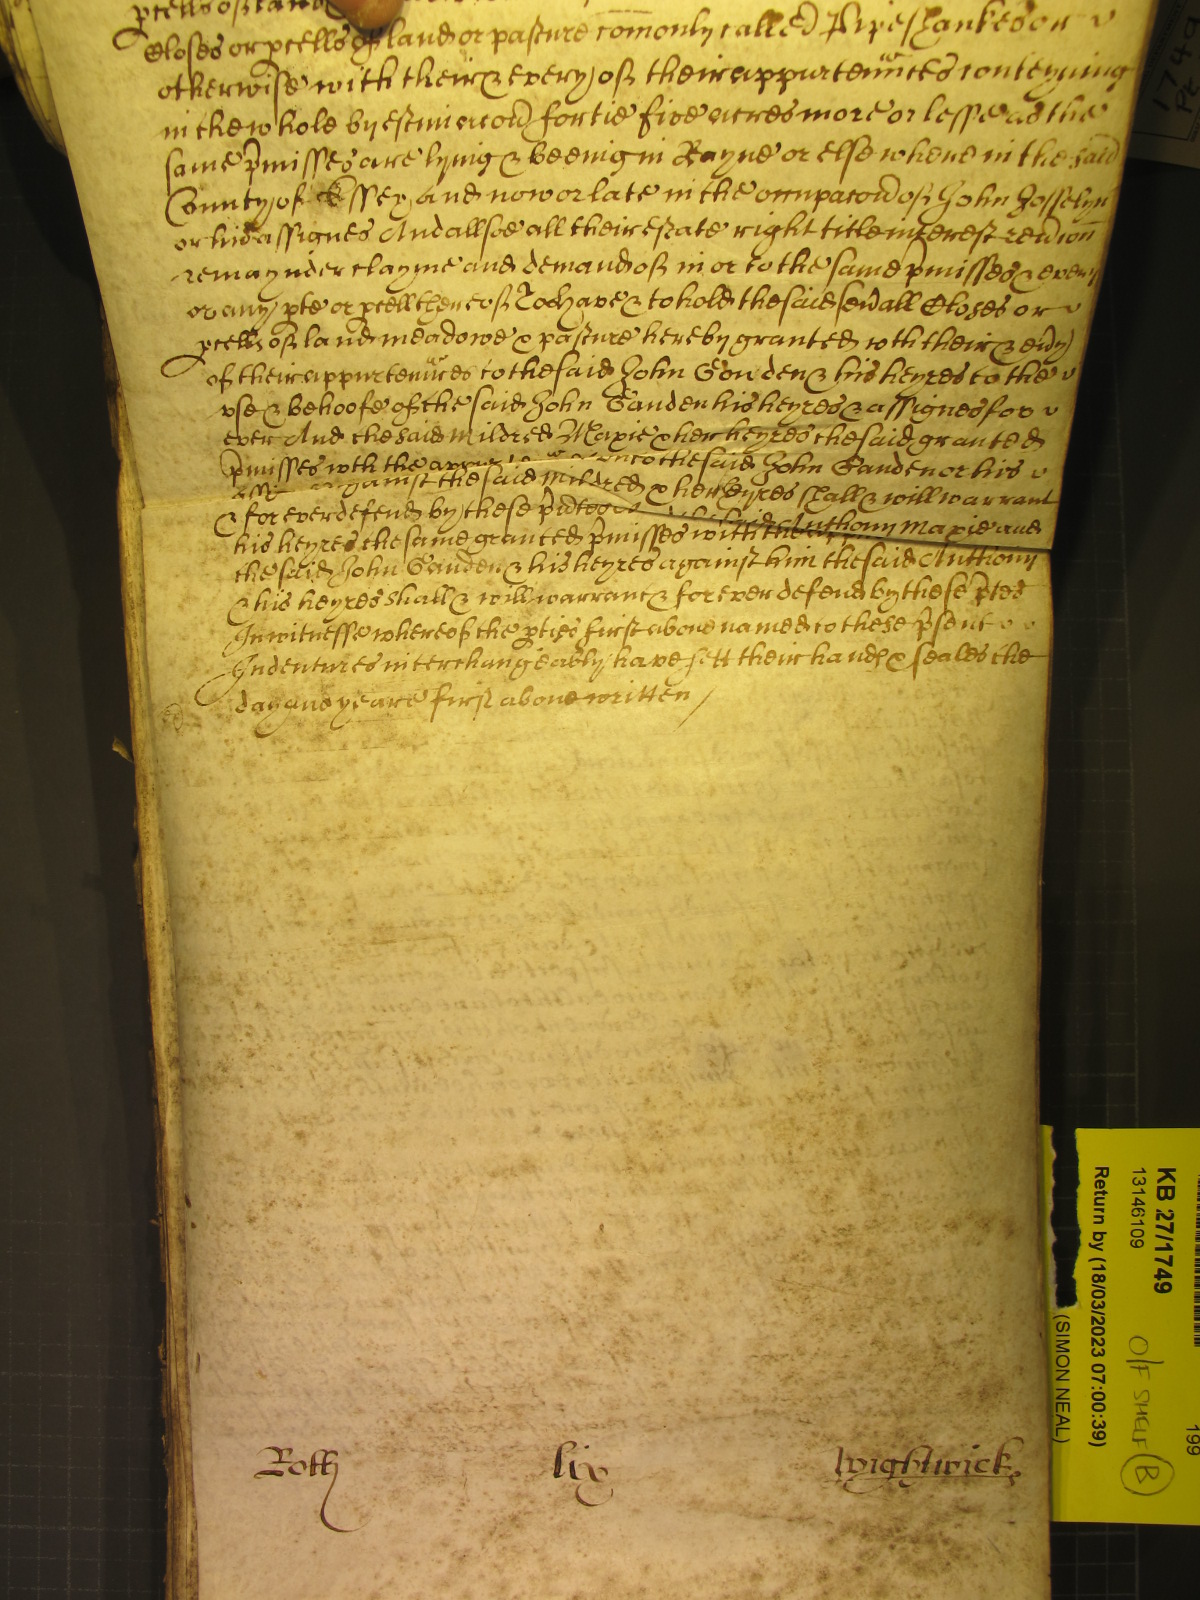 pcells of land
Closes or pcells of land or pasture comonly called Pipeshankes or
otherwise with their & every of their appurtennces conteyning
in the whole by estimacon fortie five acres more or lesse as the
same pmisses are lying & beeing in Rayne or elsewhere in the said
County of Essex And now or late in the occupacon of John Josselyn
or his assignes And allsoe all their estate right title interest revcon
remaynder clayme and demand of in or to the same pmisses & every
or any pte or pcell thereof To have & to hold the said sevall Closes or
pcells of land meadowe & pasture hereby granted wth their & evy
of their appurtennces to the said John Gouden & his heyres to the
vse & behoofe of the said John Gauden his heyres & assignes for
ever And the said Mildred Maxie & her heyres the said granted
pmisses wth the unto the said John Gauden or his
against the said Mildred & her heyres shall & will warrant
& for ever defend by these Anthony Maxie and
his heyres the same granted pmisses with the
the said John Gauden & his heyres against him the said Anthony
& his heyres shall & will warrant & for ever defend by these ptes
In witnesse whereof the pties first above named to these psent
Indentures interchangeably have sett their hands & seales the
day and yeare first above written
Roth lix Wightwick
KB 27/1749
13146109
Return by (18/03/2023 07:00:39)
(SIMON NEAL)
O/F SHELF B
199
1749